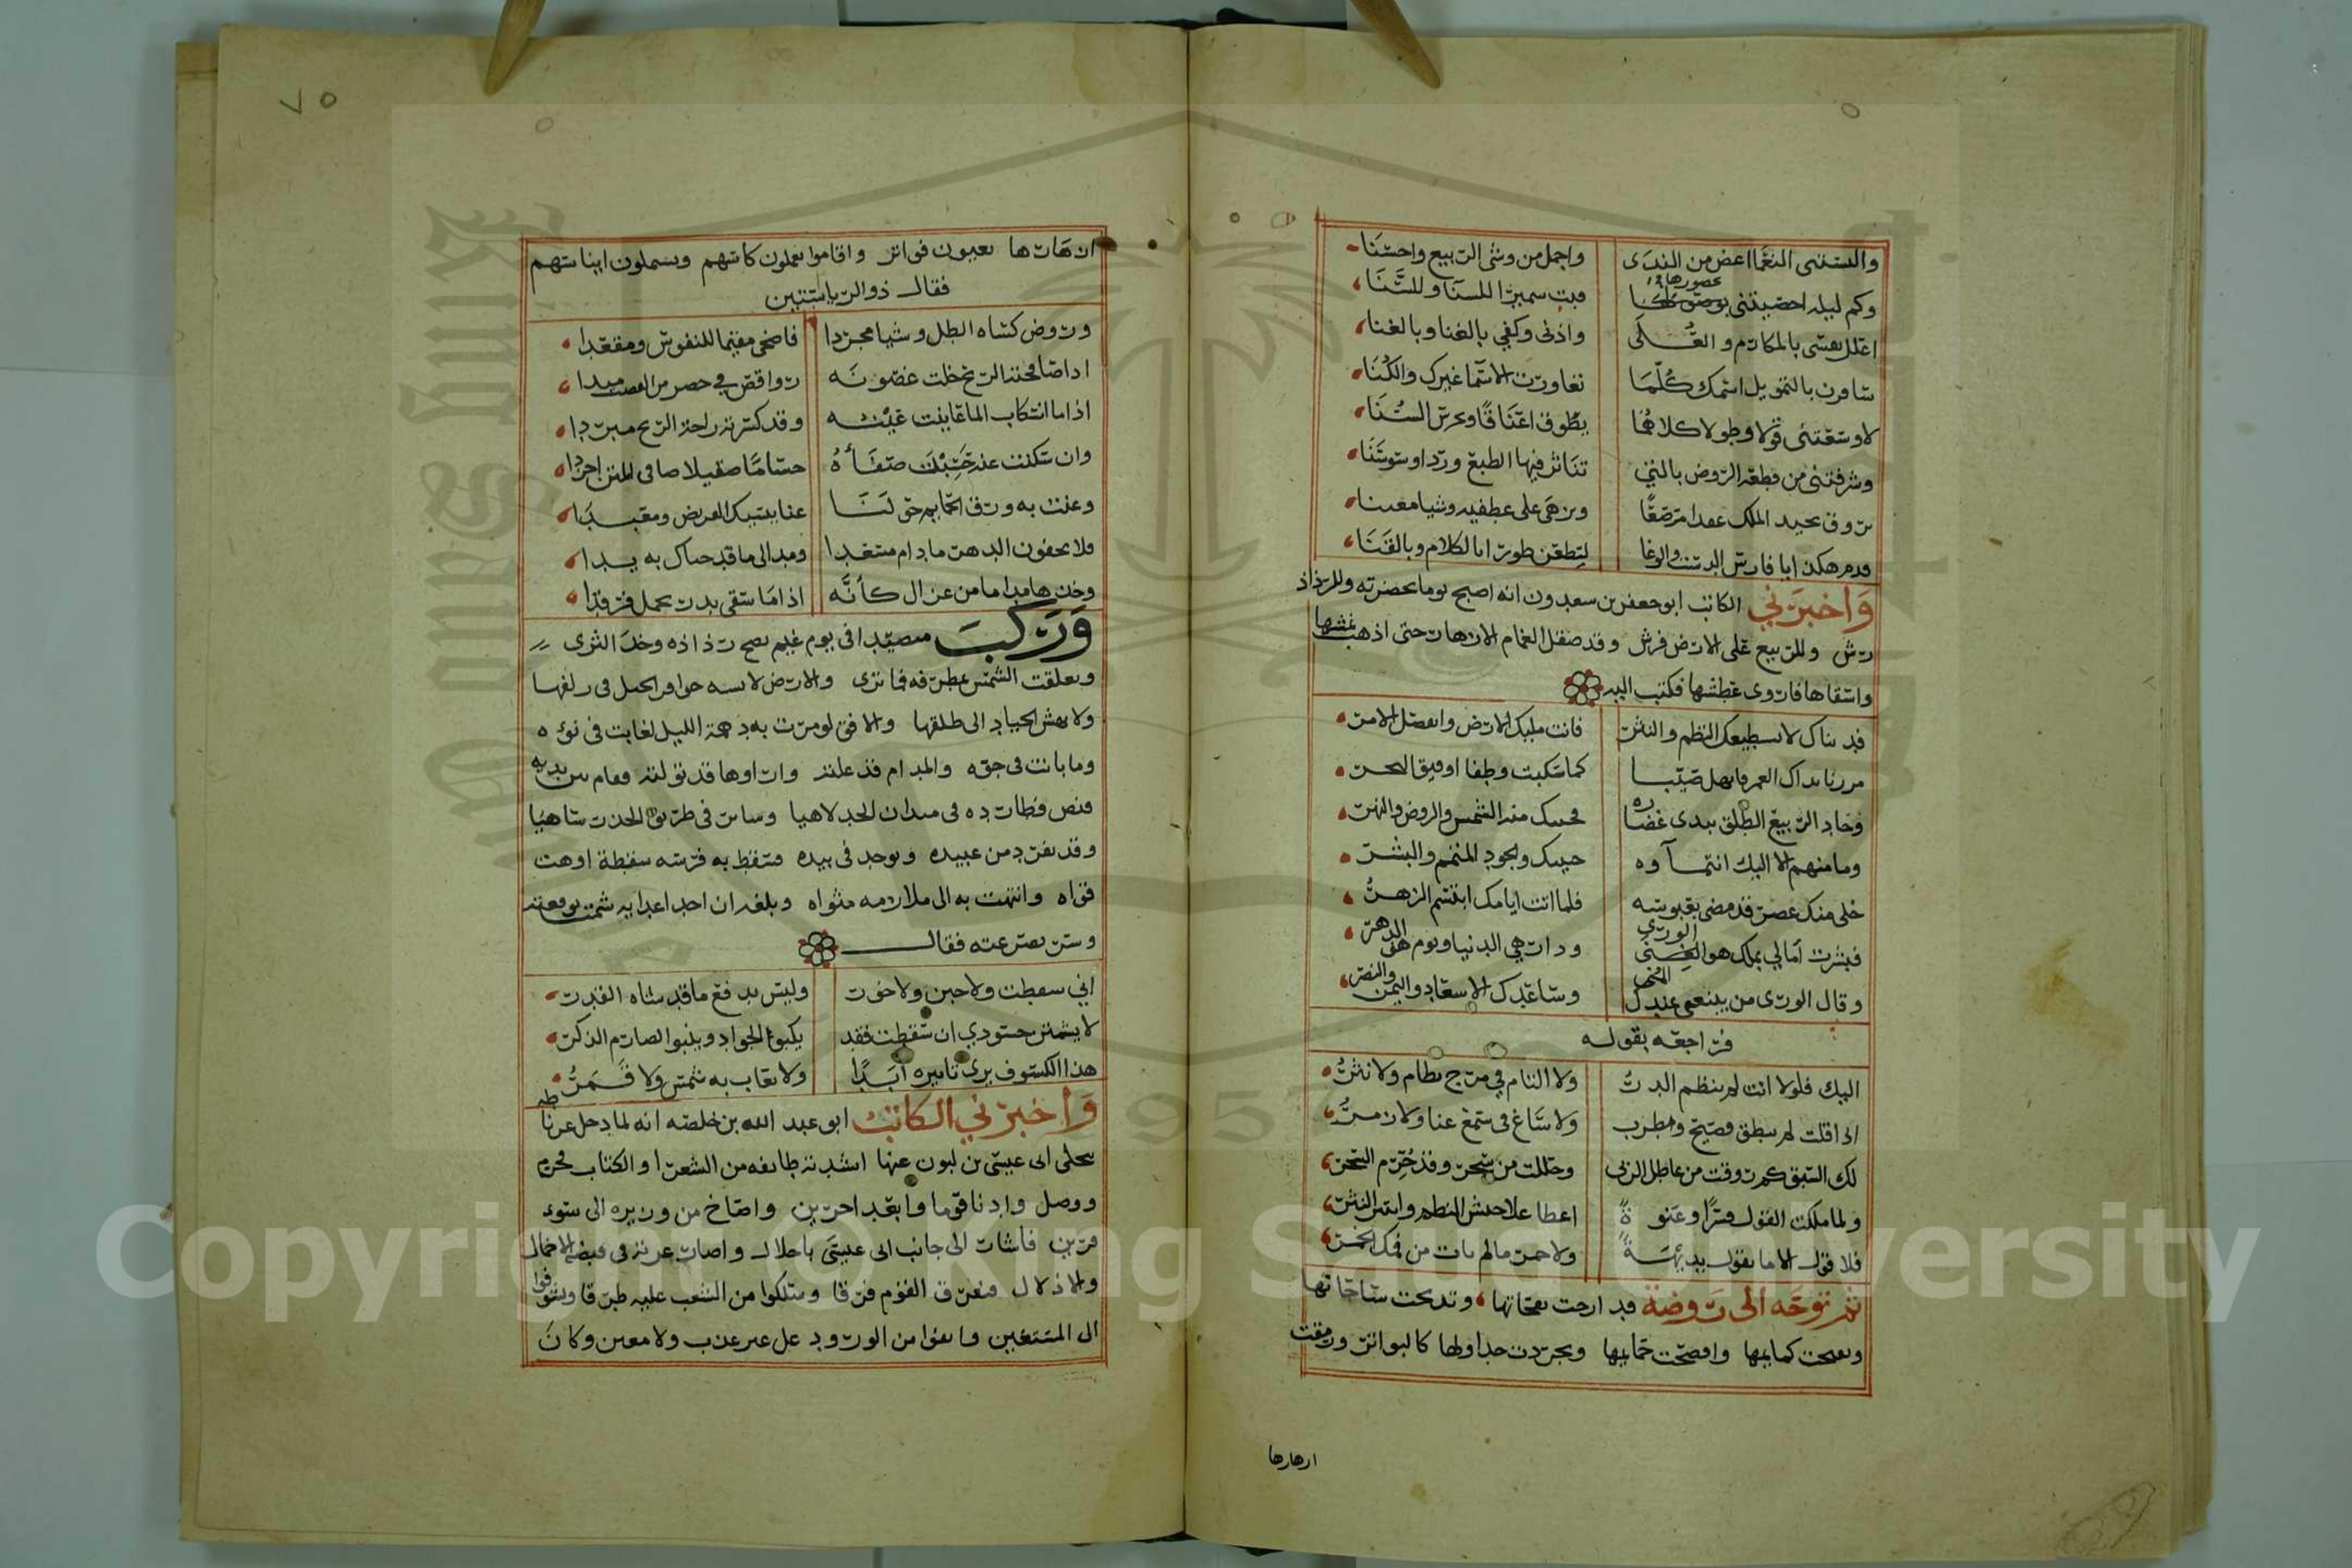 والبستني النعما اغض من الندى واجمل من وشي الربيع واحسنا
وكم ليله احضيتني بحضورها فبت سميرا للسنا وللسنا
اعلل نفسي بالمكارم والعلى واذني وكفي بالغنا وبالغنا
ساقرن بالتمويل اسمك كلما تعاورت الاسما غيرك والكنا
لاوسعتني قولا وطولا كلاهما يطوف اعناقا ويخرس السنا
وشرفتني من قطعة الروض بالتي تناثر فيها الطبع وردا وسوسنا
تروق بجيد الملك عقدا مرصعا وتزهى على عطفيه وشيا معينا
فدم هكذا يا فارس الدست والوغا لتطعن طورا بالكلام وبالقنا
واخبرني الكاتب ابو جعفر بن سعدون انه اصبح يوما بحضرته وللرذاذ
رش وللربيع على الارض فرش وقد صقل الغمام الازهار حتى اذهب نمشها
واسقاها فاروى عطشها فكتب اليه
فديناك لا يسطيعك النظم والنثر فانت مليك الارض وانفصل الامر
مرينا نداك الغمر فانهل صيبا كما سكبت وطفا او فيق البحر
وجاد الربيع الطلق يبدي غضاره فحيتك منه الشمس والروض والنهر
وما منهم الا اليك انتماوه
خلى منك عصر قد مضى بعبوسه فلما اتت ايامك ابتسم الزهر
فبشرت امالي بملك هو الورى ودار هي الدنيا ويوم هو الدهر
وساعدك الاسعاد واليمن والنصر
فراجعه بقوله
اليك فلولا انت لم ينظم الدر
اذا قلت لم ينطق فصيح ومطرب ولا ساغ في سمع غنا ولا زمر
لك السبق كم روقت من عاطل الربى وحللت من سحر وقد حرم السحر
ولما ملكت القول قسرا وعنوة
ثم توجه الى روضة قد ارجت نفحاتها وتدبجت ساحاتها
وتفتحت كمايمها وافصحت حمايمها وتجردت جداولها كالبواتر ورمقت
ازهارها
٧٥
ازهارها بعيون فواتر واقاموا يعملون كاسهم ويشملون ايناسهم
فقال ذو الرياستين
وروض كساه الطل وشيا مجردا فاضحى مقيما للنفوس ومقعدا
اذا صافحته الريح خلت غصونه رواقص في خضر من العصب ميدا
اذا ما انسكاب الما عاينت عينه وقد كسرته راحة الريح مبردا
وان سكنت عنه حسبت صفاءه حساما صقيلا صافي المتن اجردا
وغنت به ورق الحمايم حولنا غنا ينسيك الغريض ومعبدا
فلا تجفون الدهر ما دام مسعدا ومد الى ما قد حباك به يدا
وخذها مداما من غزال كانه اذا ما سقى بدر تحمل فرقدا
وركب متصيدا في يوم غيم نضح رذاذه وخد الثرى
ولا يهش الجياد الى طلقها والافق لو مرت به دهمة الليل لغابت في نوه
وما بانت في جوه والمدام قد علته واراوها قد تولته وقام بين يديه
قنص فطارده في ميدان الجد لاهيا وسار في طريق الحذر ساهيا
وقد تفرد من عبيده وتوحد في بيده فسقط به فرسه سقطة اوهت
قواه وانتهت به الى ملازمه مثواه وبلغه ان احد اعدايه شمت بوقعته
وسر بصرعته فقال
اني سقطت ولا جبن ولا خور وليس يدفع ما قد شاه القدر
لا يشمتن حسودي ان سقطت فقد يكبو الجواد وينبو الصارم الذكر
هذا الكسوف يرى تاثيره ابدا ولا يعاب به شمس ولا قمر
واخبرني الكاتب ابو عبد الله بن خلصه انه لما دخل
ابى عيسى بن لبون عنها انشدته طايفه من الشعرا والكتاب فحرم
ووصل وادنا قوما وابعد اخرين واصاخ من وزيره الى سوء
قرين فاشار الى جانب ابى عيسى باخلال
والاذلال فتفرق القوم فرقا وسلكوا من التشعب عليه طرقا وتشوفوا
الى المستعين وانفوا من الورود على غير عذب ولا معين وكان